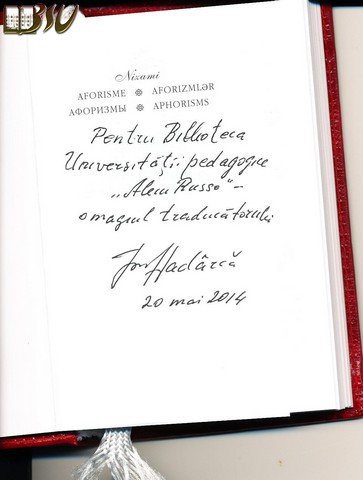 Nizami
AFORISME ֍ AFORIZMLƏR
АФОРИЗМЫ ֍ APHORISMS
Pentru Biblioteca
Universității pedagogice
„Alecu Russo" –
omagiul traducătorului
Ion Hadârcă
20 mai 2014